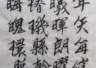 年矢每
曦暉朗曜
璇璣懸斡
魄環照